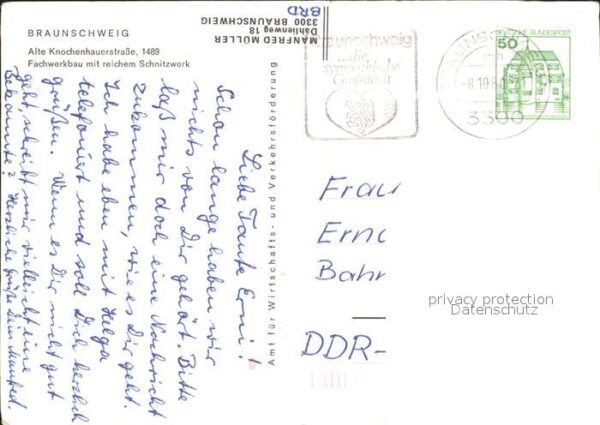 BRAUNSCHWEIG
Alte Knochenhauerstraße, 1489
Fachwerkbau mit reichem Schnitzwerk
BRD
MANFRED MÜLLER
Dahlienweg 18
3300 BRAUNSCHWEIG
Liebe Tante Erni!
Schon lange haben wir
nichts von Dir gehört. Bitte
laß mir doch eine Nachricht
zukommen, wie es Dir geht.
Ich habe eben mit Helga
telefoniert und soll Dich herzlich
grüßen. Wenn es Dir nicht gut
geht, schreibt mir vielleicht eine
Bekannte? Herzliche Grüße Dein Manfred.
Amt für Wirtschafts- und Verkehrsförderung
Braunschweig
die
sympathische
Großstadt
BRAUNSCHWEIG
-8.10.80
3300
50
DEUTSCHE BUNDESPOST
Frau
Erna
Bahn
DDR-
privacy protection
Datenschutz